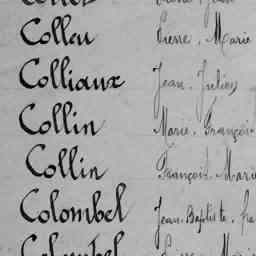 Colleu Pierre. Marie
Colliaux Jean. Julien
Collin Marie. François
Collin François. Marie
Colombel Jean-Baptiste. fra